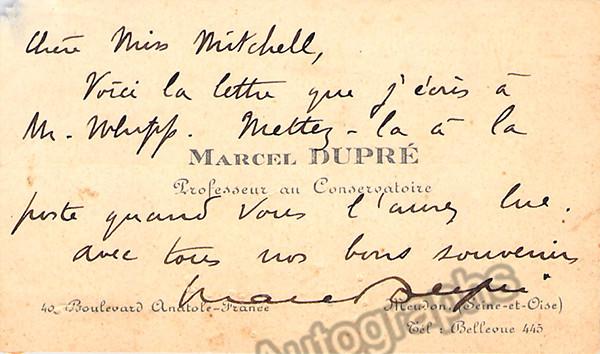 Chère Miss Mitchell,
Voici la lettre que j'écris à
Mr. Whipp. Mettez-la à la
MARCEL DUPRÉ
Professeur au Conservatoire
poste quand vous l'aurez lue.
avec tous nos bons souvenirs
Marcel Dupré
40, Boulevard Anatole-France
Meudon (Seine-et-Oise)
Tél : Bellevue 445
Autographs